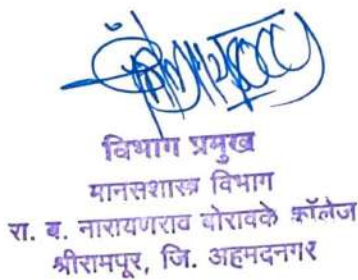 विभाग प्रमुख
मानसशास्त्र विभाग
रा. ब. नारायणराव बोरावके कॉलेज
श्रीरामपूर, जि. अहमदनगर